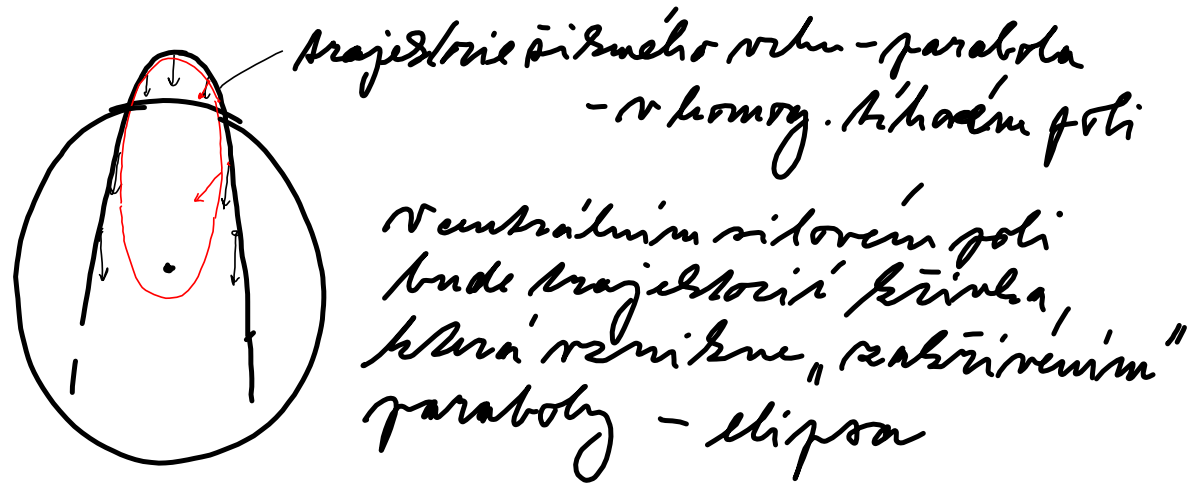 trajektorie šikmého vrhu - parabola
- v homog. tíhovém poli
V centrálním silovém poli
bude trajektorií křivka,
která vznikne „zakřivením"
paraboly - elipsa